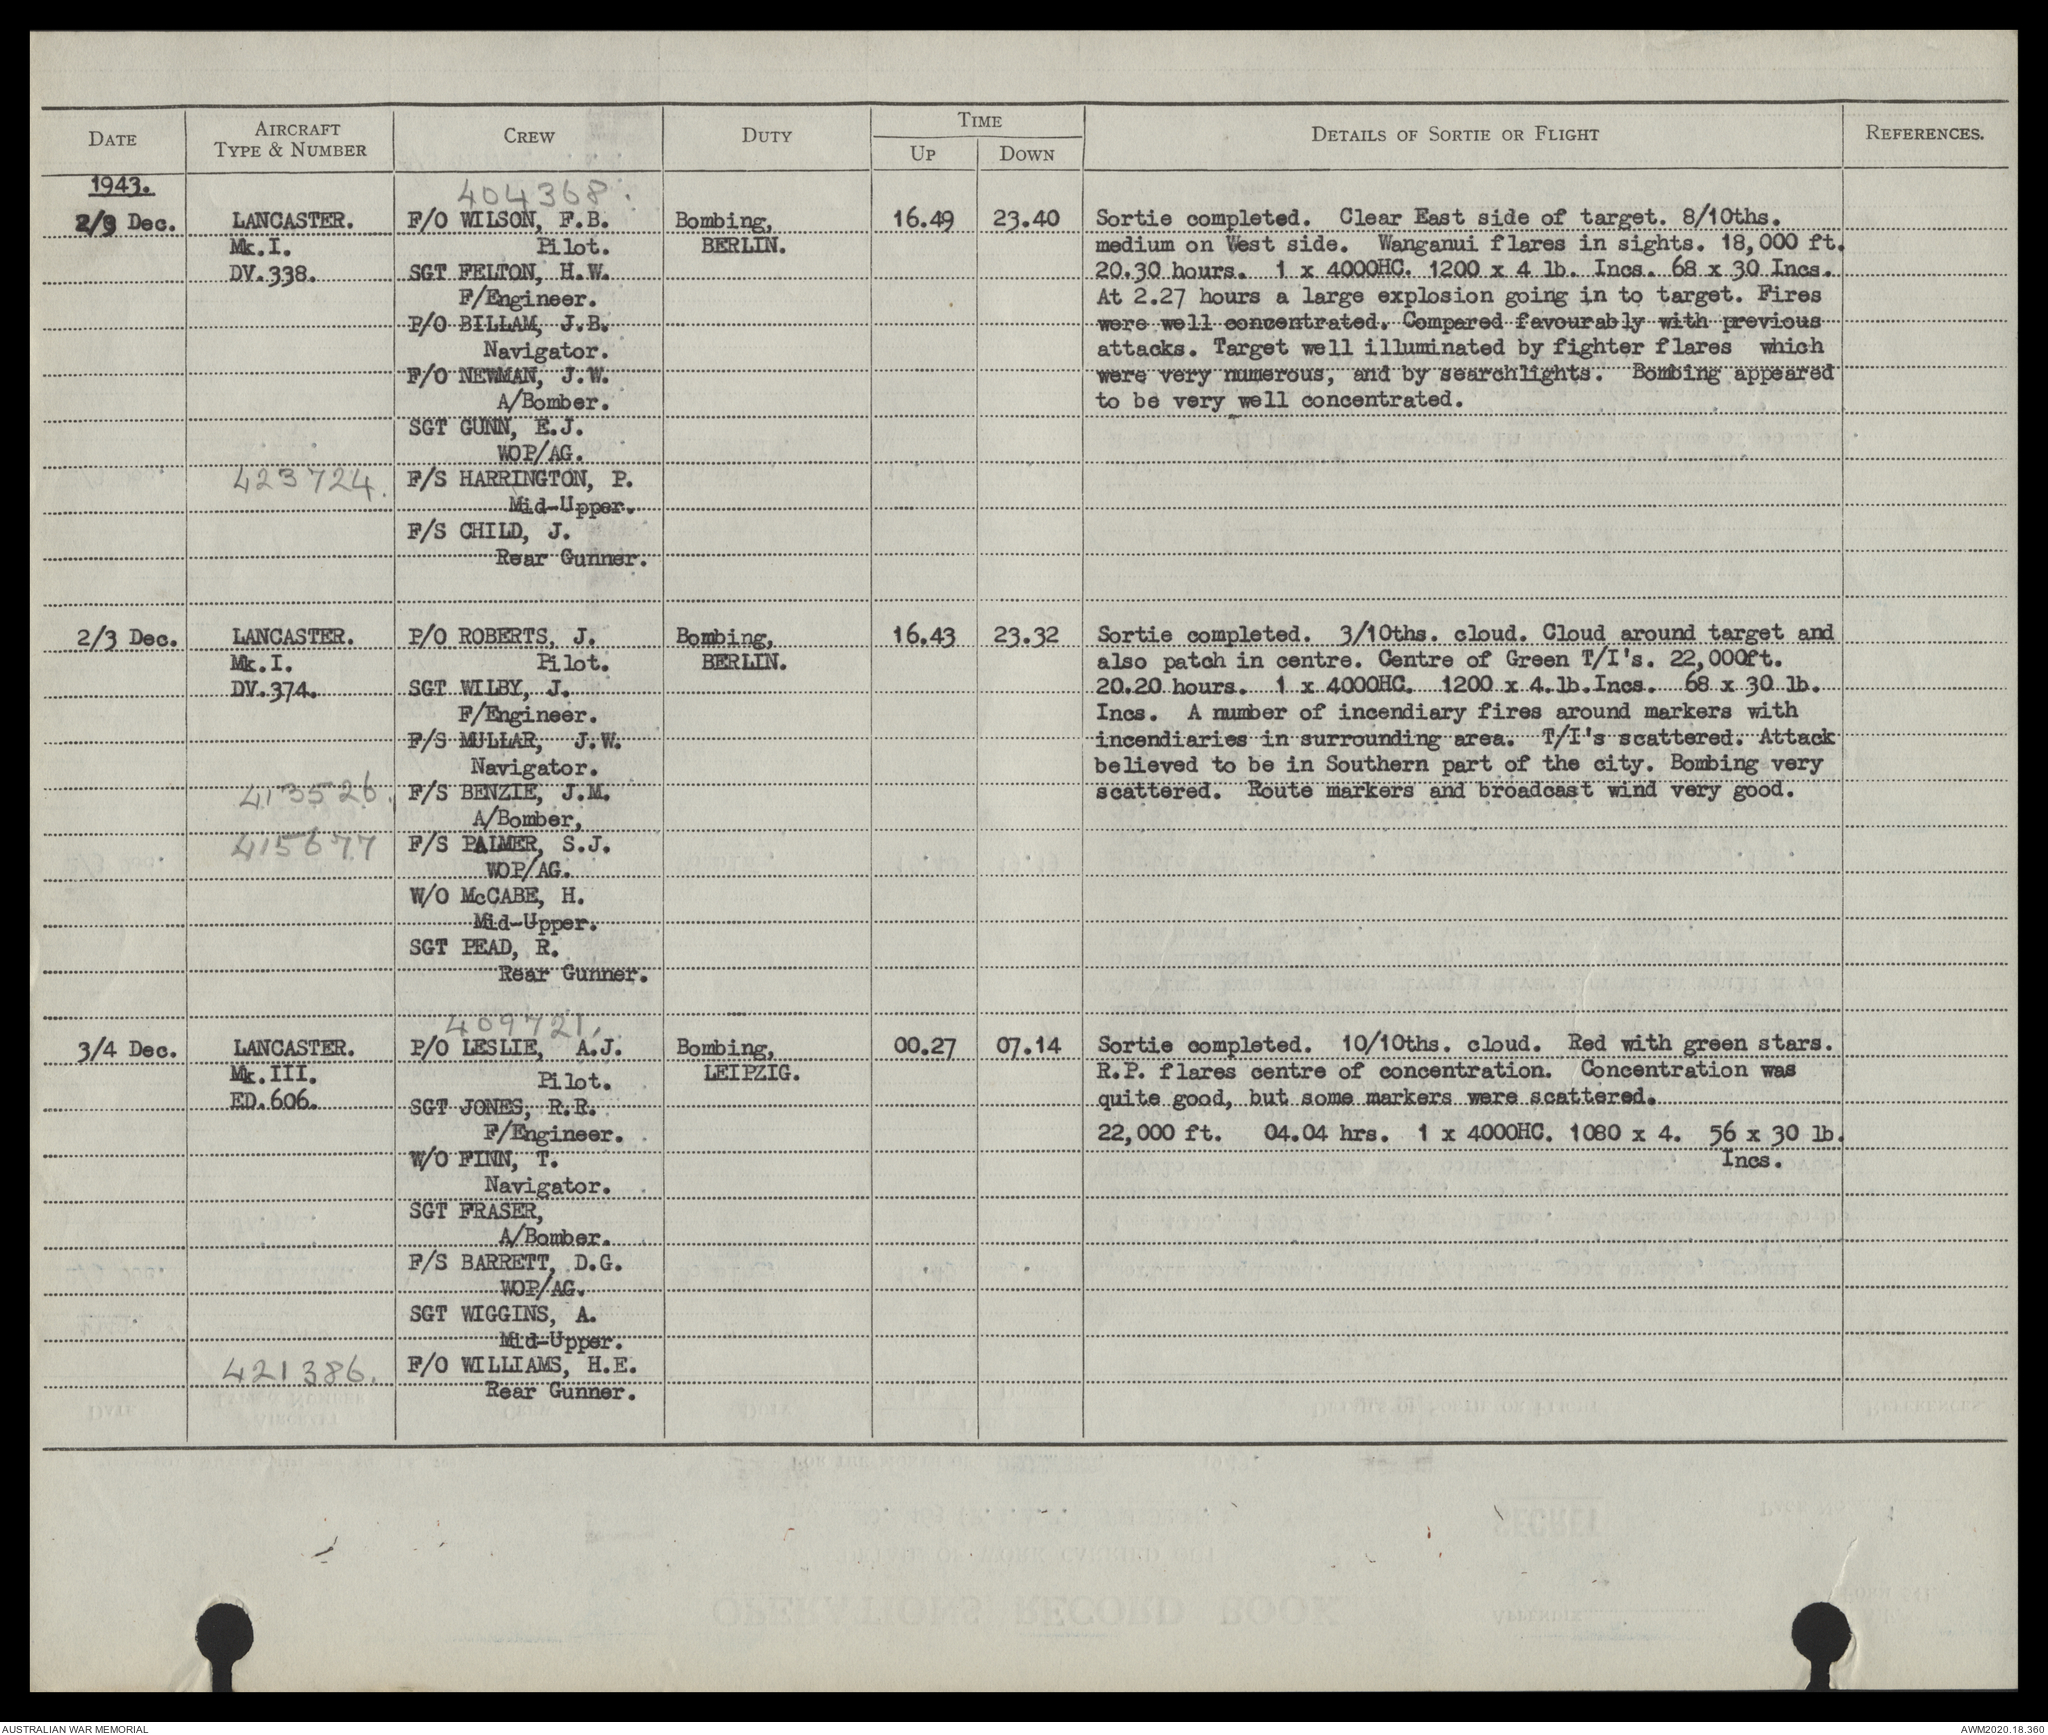 DATE
AIRCRAFT
TYPE & NUMBER
CREW
DUTY
TIME
UP
DOWN
DETAILS OF SORTIE OR FLIGHT
REFERENCES.
1943.
404368.
2/3 Dec.
LANCASTER.
Mk.I.
DV.338.
F/O WILSON, F.B.
Pilot.
SGT FELTON, H.W.
F/Engineer.
P/O BILLAM, J.B.
Navigator.
F/O NEWMAN, J.W.
A/Bomber.
SGT GUNN, E.J.
WOP/AG.
423724.
F/S HARRINGTON, P.
Mid-Upper.
F/S CHILD, J.
Rear Gunner.
Bombing,
BERLIN.
16.49
23.40
Sortie completed. Clear East side of target. 8/10ths.
medium on West side. Wanganui flares in sights. 18,000 ft.
20.30 hours. 1 x 4000HC. 1200 x 4 lb. Incs. 68 x 30 Incs.
At 2.27 hours a large explosion going in to target. Fires
were well concentrated. Compared favourably with previous
attacks. Target well illuminated by fighter flares which
were very numerous, and by searchlights. Bombing appeared
to be very well concentrated.
2/3 Dec.
LANCASTER.
Mk.I.
DV.374.
P/O ROBERTS, J.
Pilot.
SGT WILBY, J.
F/Engineer.
F/S MULLAR, J.W.
Navigator.
413526.
F/S BENZIE, J.M.
A/Bomber,
415677
F/S PALMER, S.J.
WOP/AG.
W/O McCABE, H.
Mid-Upper.
SGT PEAD, R.
Rear Gunner.
Bombing,
BERLIN.
16.43
23.32
Sortie completed. 3/10ths. cloud. Cloud around target and
also patch in centre. Centre of Green T/I's. 22,000ft.
20.20 hours. 1 x 4000HC. 1200 x 4.lb.Incs. 68 x 30 lb.
Incs. A number of incendiary fires around markers with
incendiaries in surrounding area. T/I's scattered. Attack
believed to be in Southern part of the city. Bombing very
scattered. Route markers and broadcast wind very good.
409721.
3/4 Dec.
LANCASTER.
Mk.III.
ED.606.
P/O LESLIE, A.J.
Pilot.
SGT JONES, R.R.
F/Engineer.
W/O FINN, T.
Navigator.
SGT FRASER,
A/Bomber.
F/S BARRETT, D.G.
WOP/AG.
SGT WIGGINS, A.
Mid-Upper.
421386.
F/O WILLIAMS, H.E.
Rear Gunner.
Bombing,
LEIPZIG.
00.27
07.14
Sortie completed. 10/10ths. cloud. Red with green stars.
R.P. flares centre of concentration. Concentration was
quite good, but some markers were scattered.
22,000 ft. 04.04 hrs. 1 x 4000HC. 1080 x 4. 56 x 30 lb.
Incs.
AUSTRALIAN WAR MEMORIAL
AWM2020.18.360